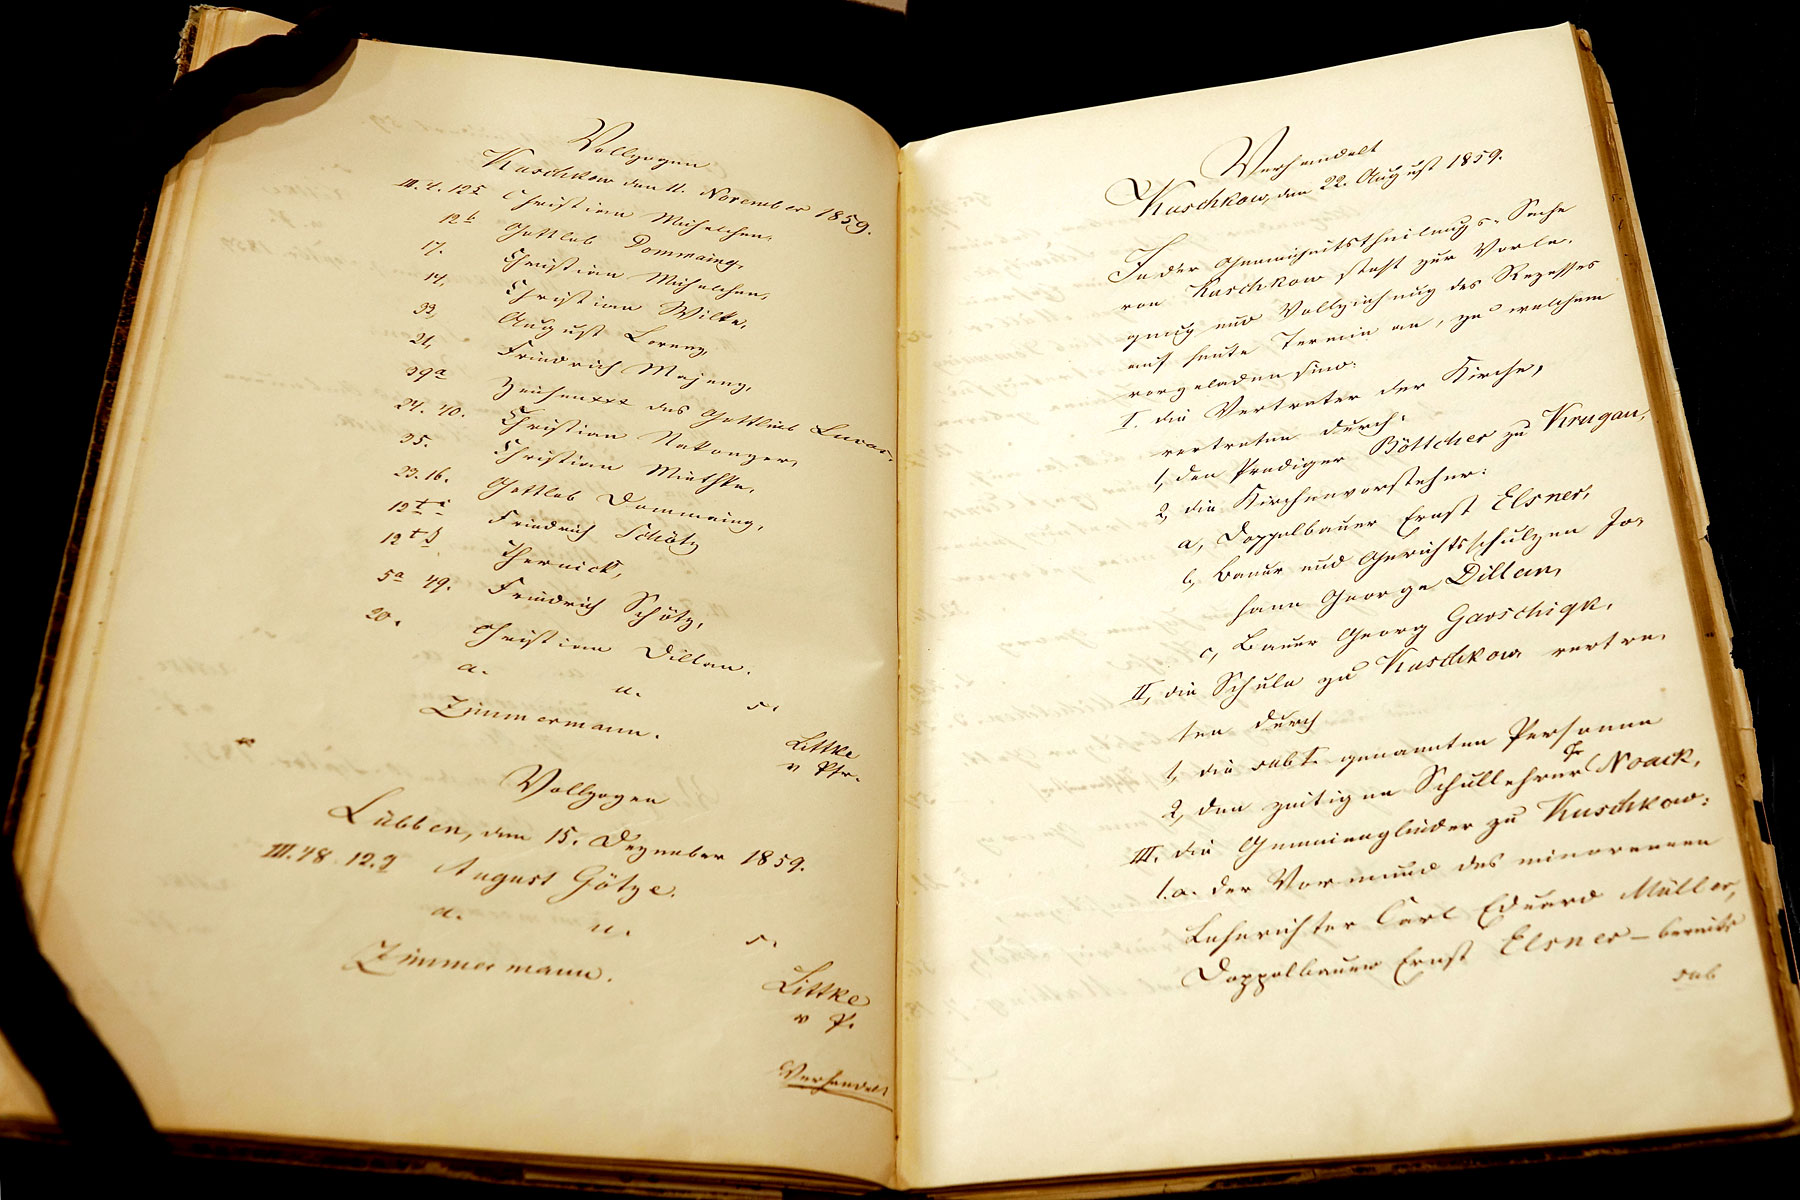 Vollzogen
Kuschkow den 11. November 1859.
III. 4. 12 Christian Michelchen.
12 b Gottlob Dommaing.
17. Christian Michelchen.
14. Christian Wilke.
33 August Lorenz.
21. Friedrich Majenz.
39a Zeichen xxx des Gottlieb Lucas.
24. 40. Christian Nakonzer.
35. Christian Miethke.
23. 16. Gottlob Dommaing.
12 Friedrich Schötz
12 Jhernick,
5a 49. Friedrich Schötz.
20. Christian Dillan.
a. u. s.
Zimmermann. Littke
v Pr.
Vollzogen
Lübben, den 15. Dezember 1859.
III. 48. 12. August Götze.
a. u. s.
Zimmermann. Littke
v P.
Verhandelt
Verhandelt
Kuschkow, den 22. August 1859.
In der Gemeinheitstheilungs-Sache
von Kuschkow steht zur Vorle-
gung und Vollziehung des Rezesses
auf heute Termin an, zu welchem
vorgeladen sind:
I. die Vertreter der Kirche,
vertreten durch:
1, den Prediger Böttcher zu Krugau,
2, die Kirchenvorsteher:
a, Doppelbauer Ernst Elsner,
b, Bauer und Gerichtsschulzen Jo-
hann George Dillan,
c, Bauer Georg Garschigk.
II, die Schule zu Kuschkow vertre-
ten durch
1, die sub I. genannten Personen
2, den zeitigen Schullehrer Noack,
III. die Gemeineglieder zu Kuschkow:
1. a. der Vormund des minorennen
Lehnrichter Carl Eduard Müller,
Doppelbauer Ernst Elsner – bereits
sub